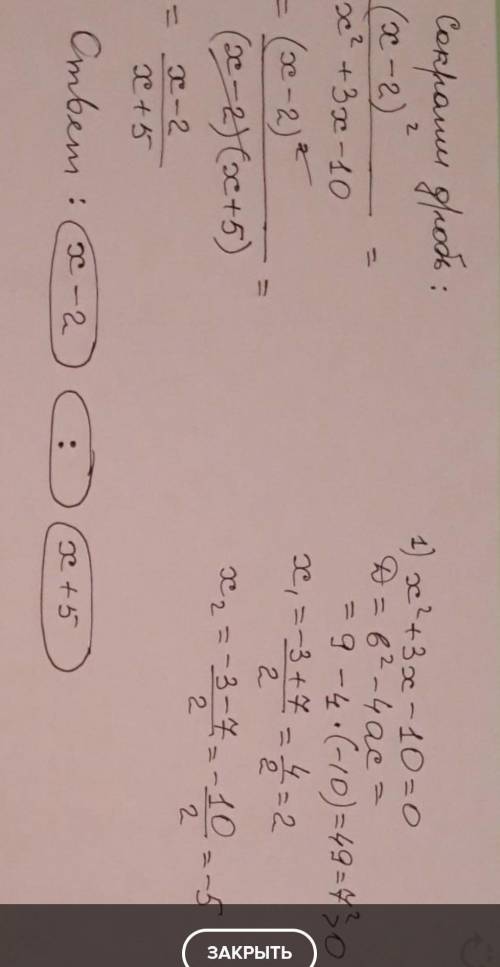 Сократи дробь:
(x-2)²
x²+3x-10 =
= (x-2)²
(x-2)(x+5) =
= x-2
x+5
Ответ: x-2 : x+5
1) x²+3x-10=0
D = b²-4ac =
= 9-4·(-10)=49=7²>0
x₁ = -3+7 / 2 = 4/2 = 2
x₂ = -3-7 / 2 = -10/2 = -5
ЗАКРЫТЬ